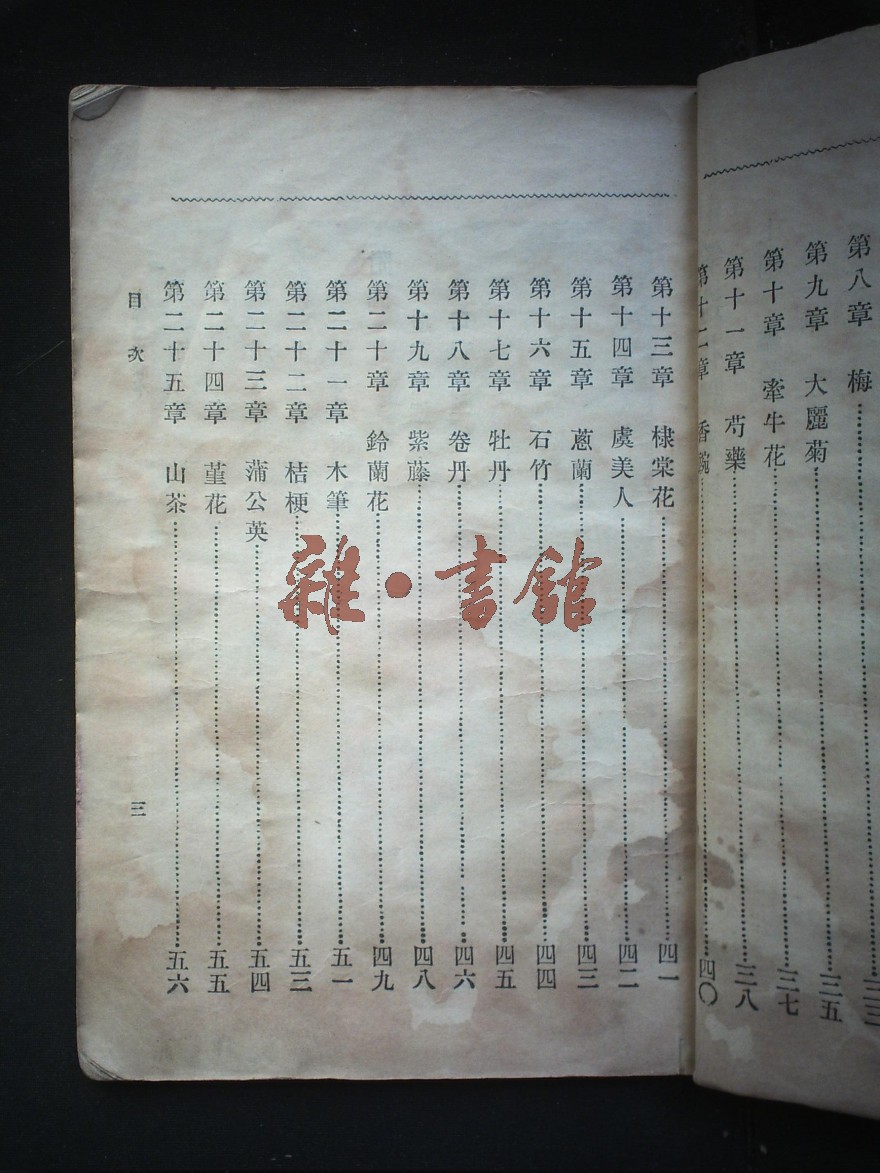 第八章　梅………三三
第九章　大麗菊………三五
第十章　牽牛花………三七
第十一章　芍藥………三八
第十二章　香豌………四〇
第十三章　棣棠花………四一
第十四章　虞美人………四二
第十五章　蔥蘭………四三
第十六章　石竹………四四
第十七章　牡丹………四五
第十八章　卷丹………四六
第十九章　紫藤………四八
第二十章　鈴蘭花………四九
第二十一章　木筆………五一
第二十二章　桔梗………五三
第二十三章　蒲公英………五四
第二十四章　菫花………五五
第二十五章　山茶………五六
目次
三
雜·書館